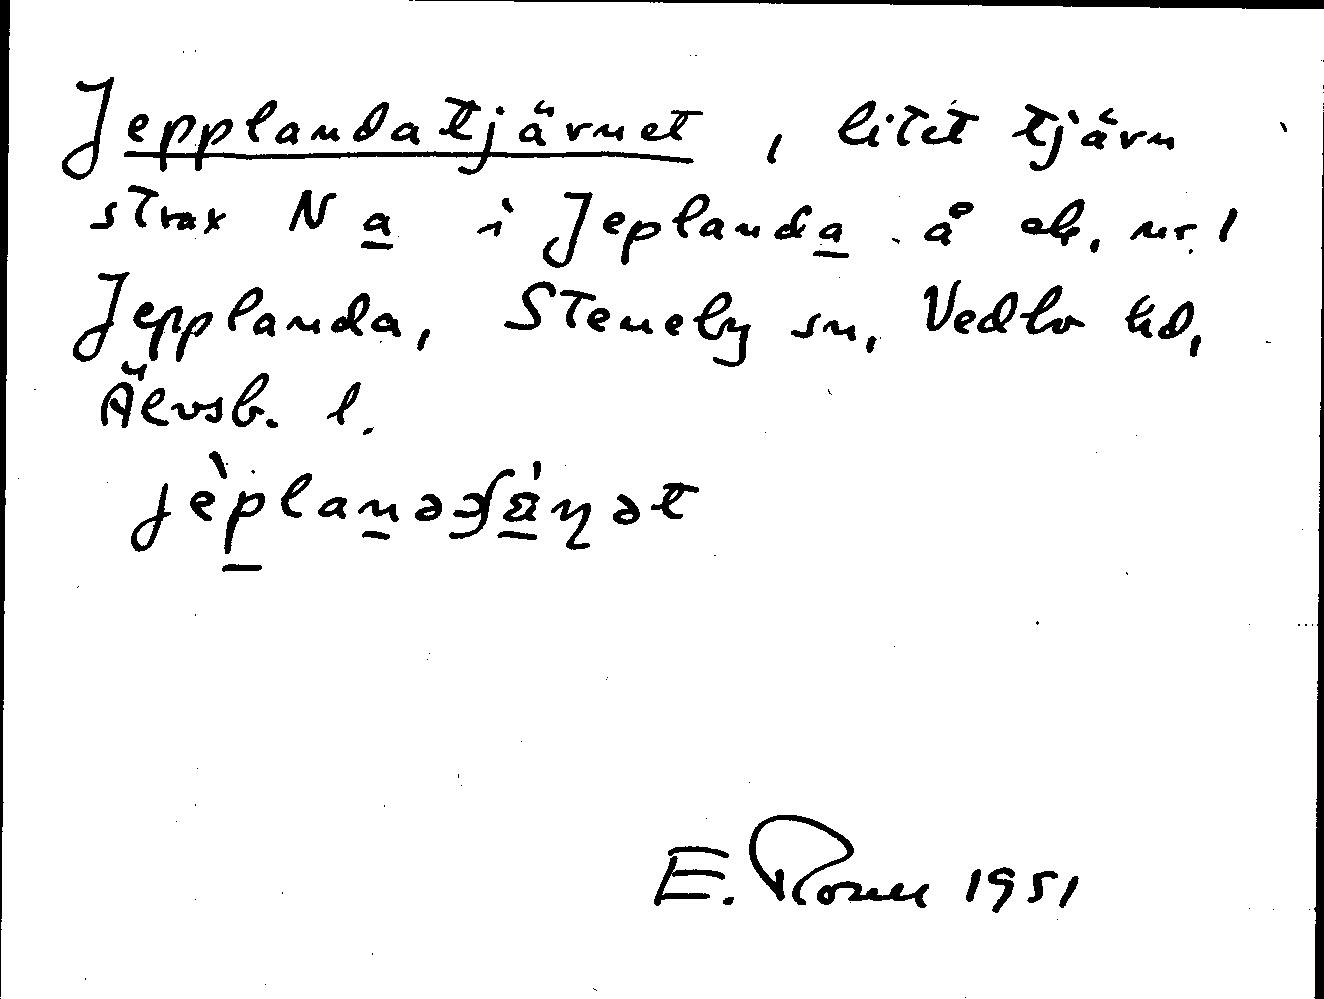 Jepplandatjärnet, litet tjärn
strax N a i Jeplanda å ek. nr. 1
Jepplanda, Steneby sn, Vedbo hd,
Älvsb. l.
E. 1951